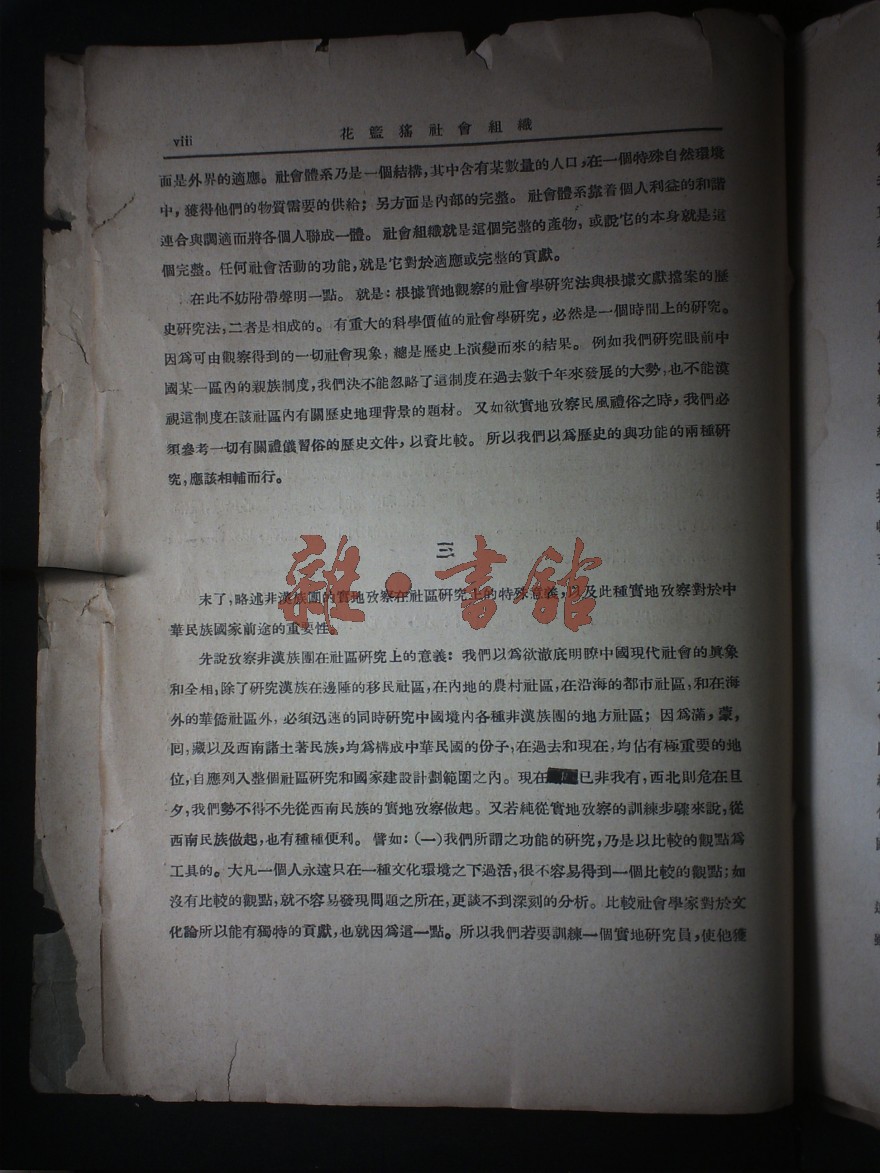 viii
花籃猺社會組織
面是外界的適應。社會體系乃是一個結構,其中含有某數量的人口,在一個特殊自然環境
中,獲得他們的物質需要的供給;另方面是內部的完整。社會體系靠着個人利益的和諧
連合與調適而將各個人聯成一體。社會組織就是這個完整的產物,或說它的本身就是這
個完整。任何社會活動的功能,就是它對於適應或完整的貢獻。
在此不妨附帶聲明一點。就是:根據實地觀察的社會學研究法與根據文獻檔案的歷
史研究法,二者是相成的。有重大的科學價值的社會學研究,必然是一個時間上的研究。
因爲可由觀察得到的一切社會現象,總是歷史上演變而來的結果。例如我們研究眼前中
國某一區內的親族制度,我們決不能忽略了這制度在過去數千年來發展的大勢,也不能漠
視這制度在該社區內有關歷史地理背景的題材。又如欲實地攷察民風禮俗之時,我們必
須參考一切有關禮儀習俗的歷史文件,以資比較。所以我們以爲歷史的與功能的兩種研
究,應該相輔而行。
三
雜·書館
末了,略述非漢族團的實地攷察在社區研究上的特殊意義,以及此種實地攷察對於中
華民族國家前途的重要性
先說攷察非漢族團在社區研究上的意義:我們以爲欲澈底明瞭中國現代社會的眞象
和全相,除了研究漢族在邊陲的移民社區,在內地的農村社區,在沿海的都市社區,和在海
外的華僑社區外,必須迅速的同時研究中國境內各種非漢族團的地方社區;因爲滿,蒙,
回,藏以及西南諸土著民族,均爲構成中華民國的份子,在過去和現在,均佔有極重要的地
位,自應列入整個社區研究和國家建設計劃範圍之內。現在已非我有,西北則危在旦
夕,我們勢不得不先從西南民族的實地攷察做起。又若純從實地攷察的訓練步驟來說,從
西南民族做起,也有種種便利。譬如:(一)我們所謂之功能的研究,乃是以比較的觀點爲
工具的。大凡一個人永遠只在一種文化環境之下過活,很不容易得到一個比較的觀點;如
沒有比較的觀點,就不容易發現問題之所在,更談不到深刻的分析。比較社會學家對於文
化論所以能有獨特的貢獻,也就因爲這一點。所以我們若要訓練一個實地研究員,使他獲